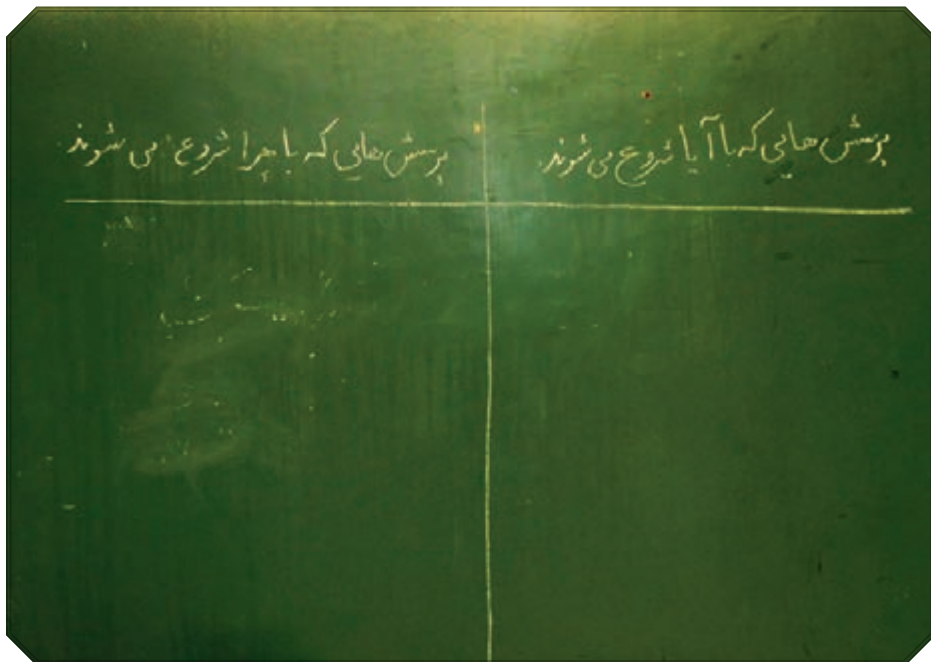 پرسش هایی که با آیا شروع می شوند.
پرسش هایی که با چرا شروع می شوند.